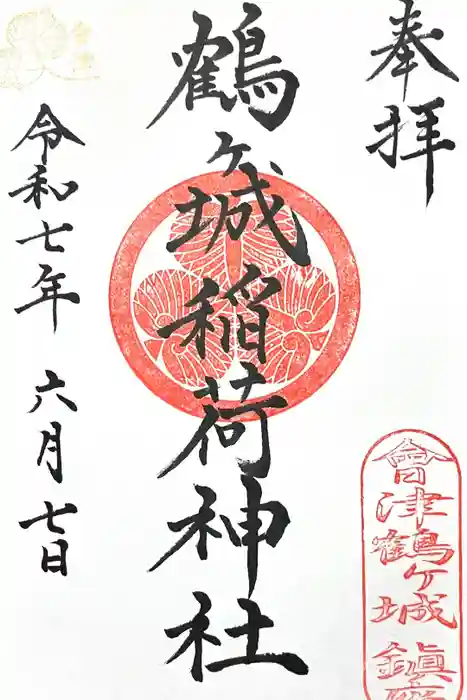 奉拝
會津鶴ヶ城鎮
鶴ヶ城稲荷神社
令和七年 六月七日